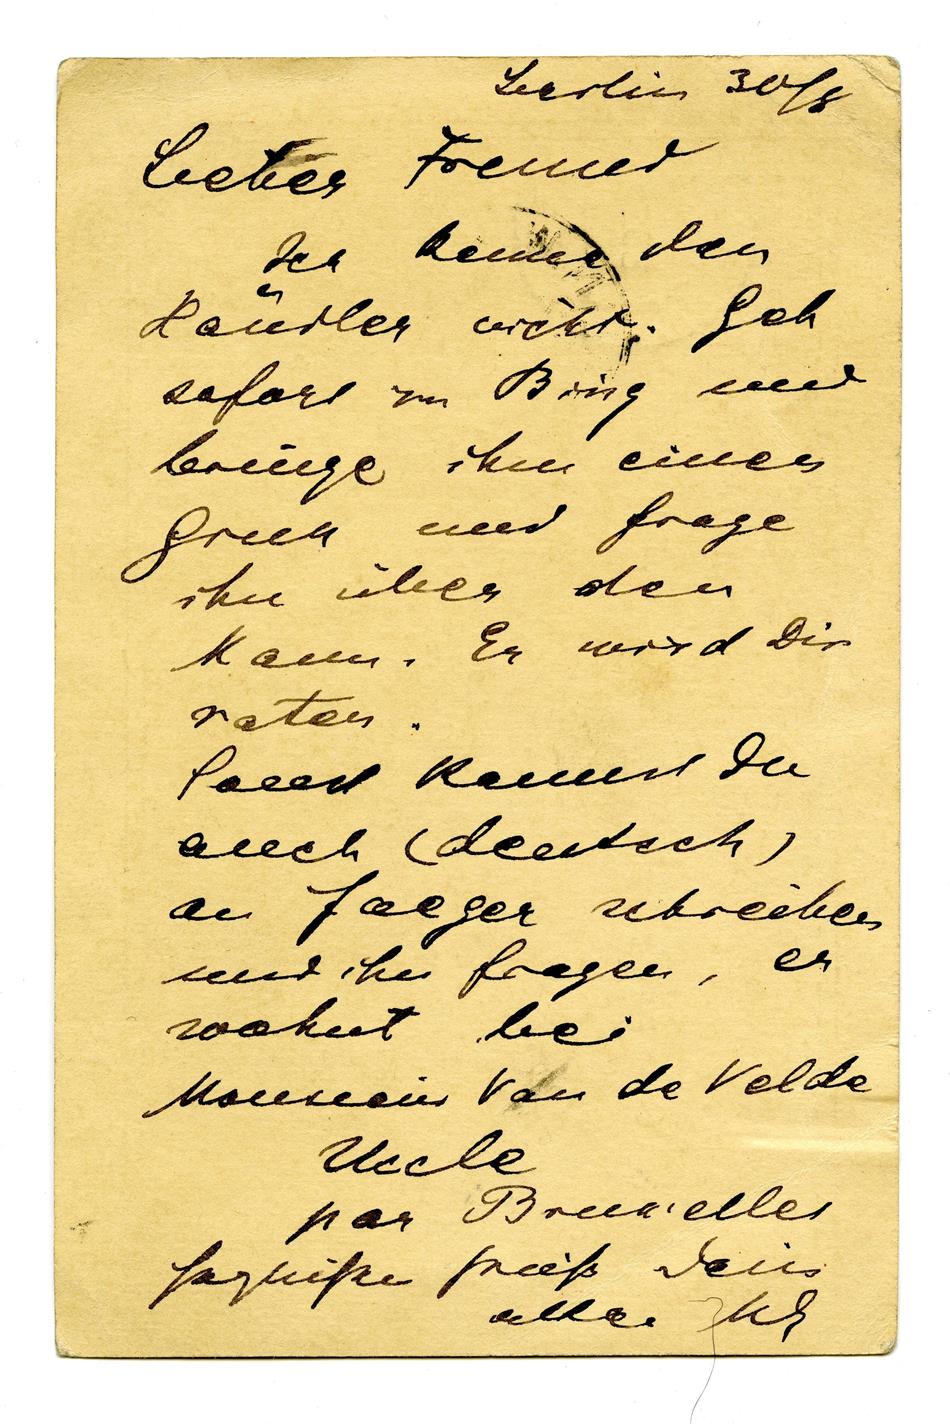 Berlin 30/8
Lieber Freund
Ich kenne den
Händler nicht. Geh
sofort zu Bing und
bringe ihm einen
Gruss und frage
ihn über den
Mann. Er wird Dir
raten.
Sonst kannst Du
auch (deutsch)
an Jaeger schreiben
und ihn fragen, er
wohnt bei
Monsieur Van de Velde
Uccle
par Bruxelles
grüßt Dein